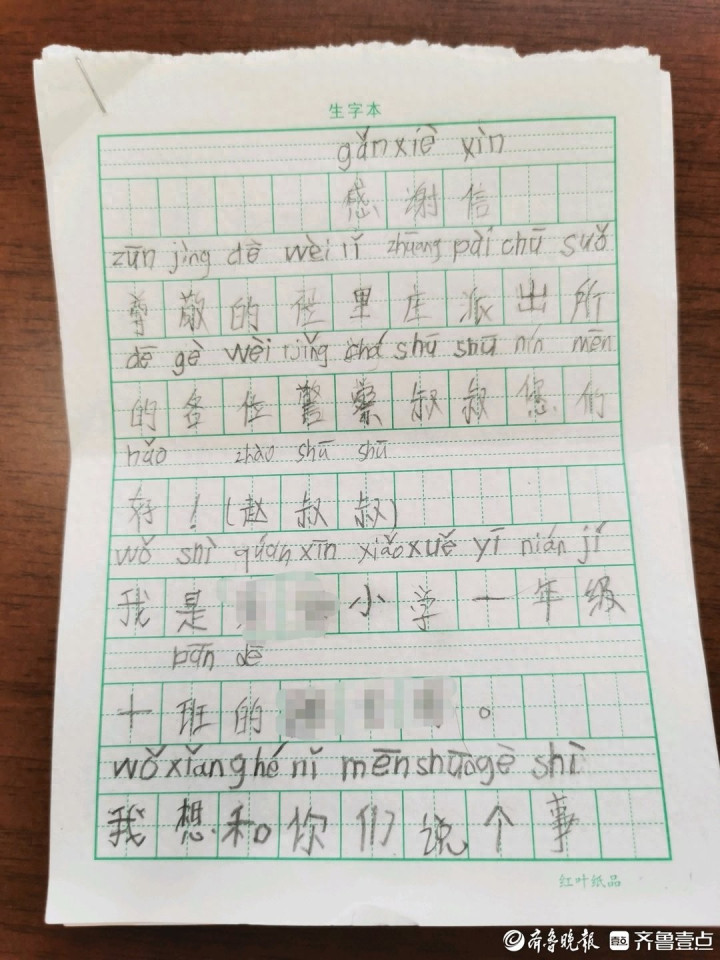 生字本
gǎn xiè xìn
感谢信
zūn jìng dē wèi lǐ zhuāng pài chū suǒ
尊敬的位里庄派出所
dē gè wèi jǐng chá shū shū nín mēn
的各位警察叔叔您们
hǎo zhào shū shū
好！(赵叔叔)
wǒ shì quán xīn xiǎo xuě yī nián jí
我是小学一年级
bān dē
十班的。
wǒ xiǎng hé nǐ mēn shuō gè shì
我想和你们说个事
红叶纸品
齐鲁晚报 壹点 齐鲁壹点